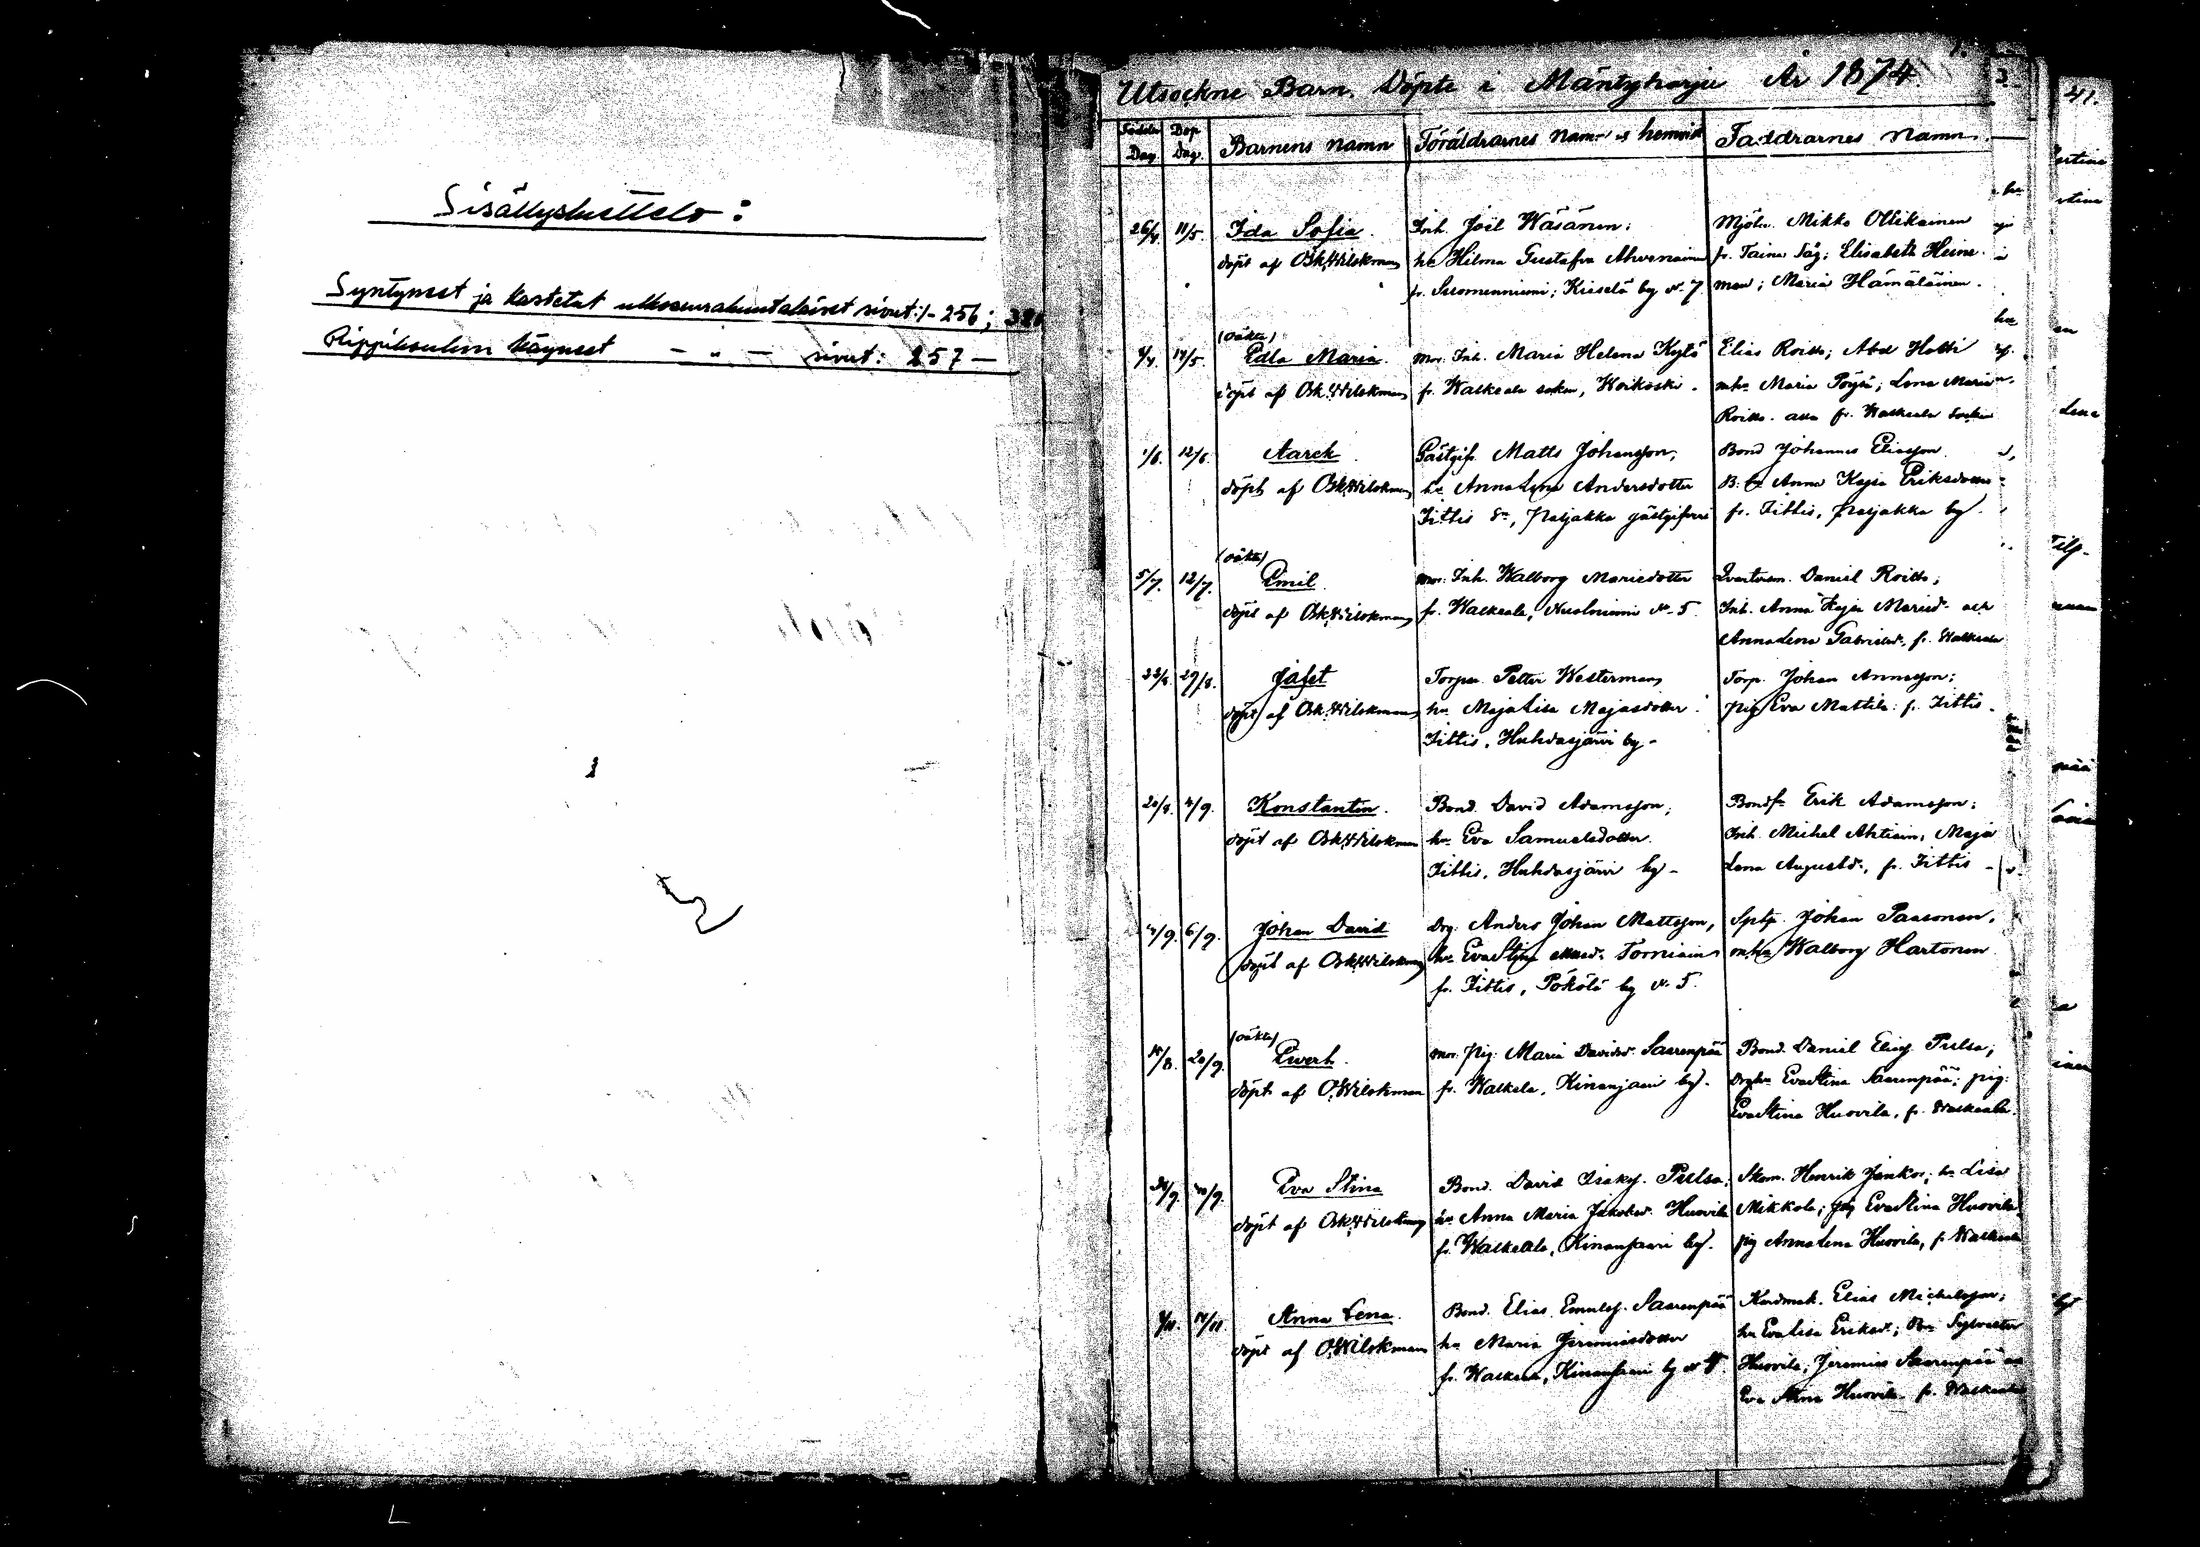 Sisällysluettelo:
Syntyneet ja kastetut ulkoseurakuntalaiset sivut: 1-256;
Rippikoulun käyneet — „ — sivut: 257 —
1.
Utsockne Barn Döpte i Mäntyharju År 1874
Födelse Dag
Dop Dag
Barnens namn
Föräldrarnes Namn o hemvist
Faddrarnes Namn
26/4. 11/5. Ida Sofia.
döpt af Osk. Wilskman
Inh. Joel Wäsänen;
hu Hilma Gustafva Ahvenainen
fr. Suomenniemi; Kiiselä by № 7
Mjöln. Mikko Ollikainen
fr. Taina Säg; Elisabeth Heino-
men; Maria Hämäläinen.
(oäkta)
14/5. Edla Maria.
döpt af Osk. Wilskman
mor. Inh. Maria Helena Kytö
fr. Walkeala socken, Woikoski.
Elias Roitto; Abel Hatti
mhu Maria Pöyry; Lena Maria
Roitto. alla fr. Walkeala Socken
1/6. 12/6. Aarek
döpt af Osk. Wilskman
Gästgifv. Matts Johansson;
hu Anna Lena Andersdotter
Iittis Sn, Paljakka gästgifveri
Bond Johannes Eliasson
B. hu Anna Kajsa Eriksdotter
fr. Iittis, Paljakka by.
(oäkta)
5/7. 12/7. Emil
döpt af Osk. Wilskman
mor. Inh. Walborg Mariedotter
fr. Walkeala, № 5
Daniel Roitto;
Inh. Anna Kajsa Maried. och
Anna Lena Gabrielsd., fr. Walkeala
22/8. 29/8. Jafet
döpt af Osk. Wilskman
Torpar. Petter Westerman
hu Maja Lisa Majasdotter
Iittis, Huhdasjärvi by-
Torp. Johan Annasson;
pig Eva Mattila fr. Iittis.
20/8. 4/9. Konstantin.
döpt af Osk. Wilskman
Bond. David Adamsson;
hu Eva Samuelsdotter.
Iittis, Huhdasjärvi by-
Erik Adamsson;
Inh. Michel Ahtiain; Maja
Lena Augustd., fr. Iittis
4/9. 6/9. Johan David
döpt af Osk. Wilskman
Drg. Anders Johan Mattsson,
hu Eva Stina Torniain
fr. Iittis, Pökölä by № 5.
Johan Paasonen,
mhu Walborg Hartonen
(oäkta)
20/9. Evert.
döpt af O. Wilskman
mor. pig. Maria Davidsd. Saarenpää
fr. Walkeala, Kinansaari by.
Bond. Daniel Elias. Pulsa;
Drghu Eva Stina Saarenpää; pig.
Eva Stina Huovila, fr. Walkeala.
Eva Stina
döpt af Osk. Wilskman
Bond. David Isaks. Pulsa;
hu Anna Maria Jakobsd. Huovila
fr. Walkeala, Kinansaari by.
Skom. Henrik Jankoi; hu Lisa
Mikkola; pig Eva Stina Huovila
pig Anna Lena Huovila, fr Walkeala
14/11. Anna Lena.
döpt af O. Wilskman
Bond. Elias Saarenpää
hu Maria Jeremiasdotter
fr. Walkeala, Kinansaari by №
Elias Michelsson;
hu Eva Lisa Eriksd.; Sylvester
Huovila; Jeremias Saarenpää
Eva Stina Huovila fr. Walkeala